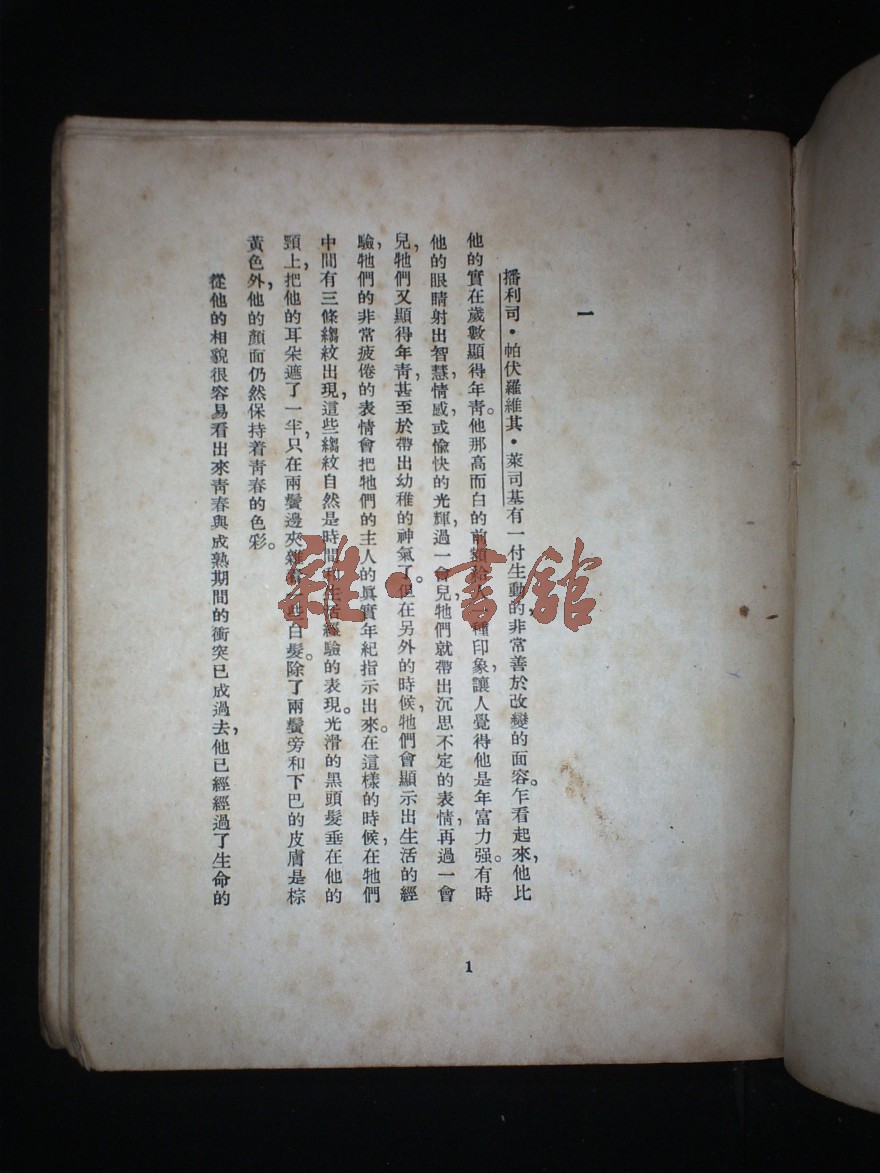 一
播利司·帕伏羅維其·萊司基有一付生動的，非常善於改變的面容。乍看起來，他比
他的實在歲數顯得年靑。他那高而白的前額給人種印象，讓人覺得他是年富力强。有時
他的眼睛射出智慧，情感，或愉快的光輝，過一會兒，牠們就帶出沉思不定的表情，再過一會
兒，牠們又顯得年靑，甚至於帶出幼稚的神氣了。但在另外的時候，牠們會顯示出生活的經
驗，牠們的非常疲倦的表情會把牠們的主人的眞實年紀指示出來。在這樣的時候，在牠們
中間有三條縐紋出現，這些縐紋自然是時間和生活經驗的表現。光滑的黑頭髮垂在他的
頸上，把他的耳朵遮了一半，只在兩鬢邊夾雜些白髮。除了兩鬢旁和下巴的皮膚是棕
黃色外，他的顏面仍然保持着靑春的色彩。
從他的相貌很容易看出來靑春與成熟期間的衝突已成過去，他已經經過了生命的
1
雜·書舘